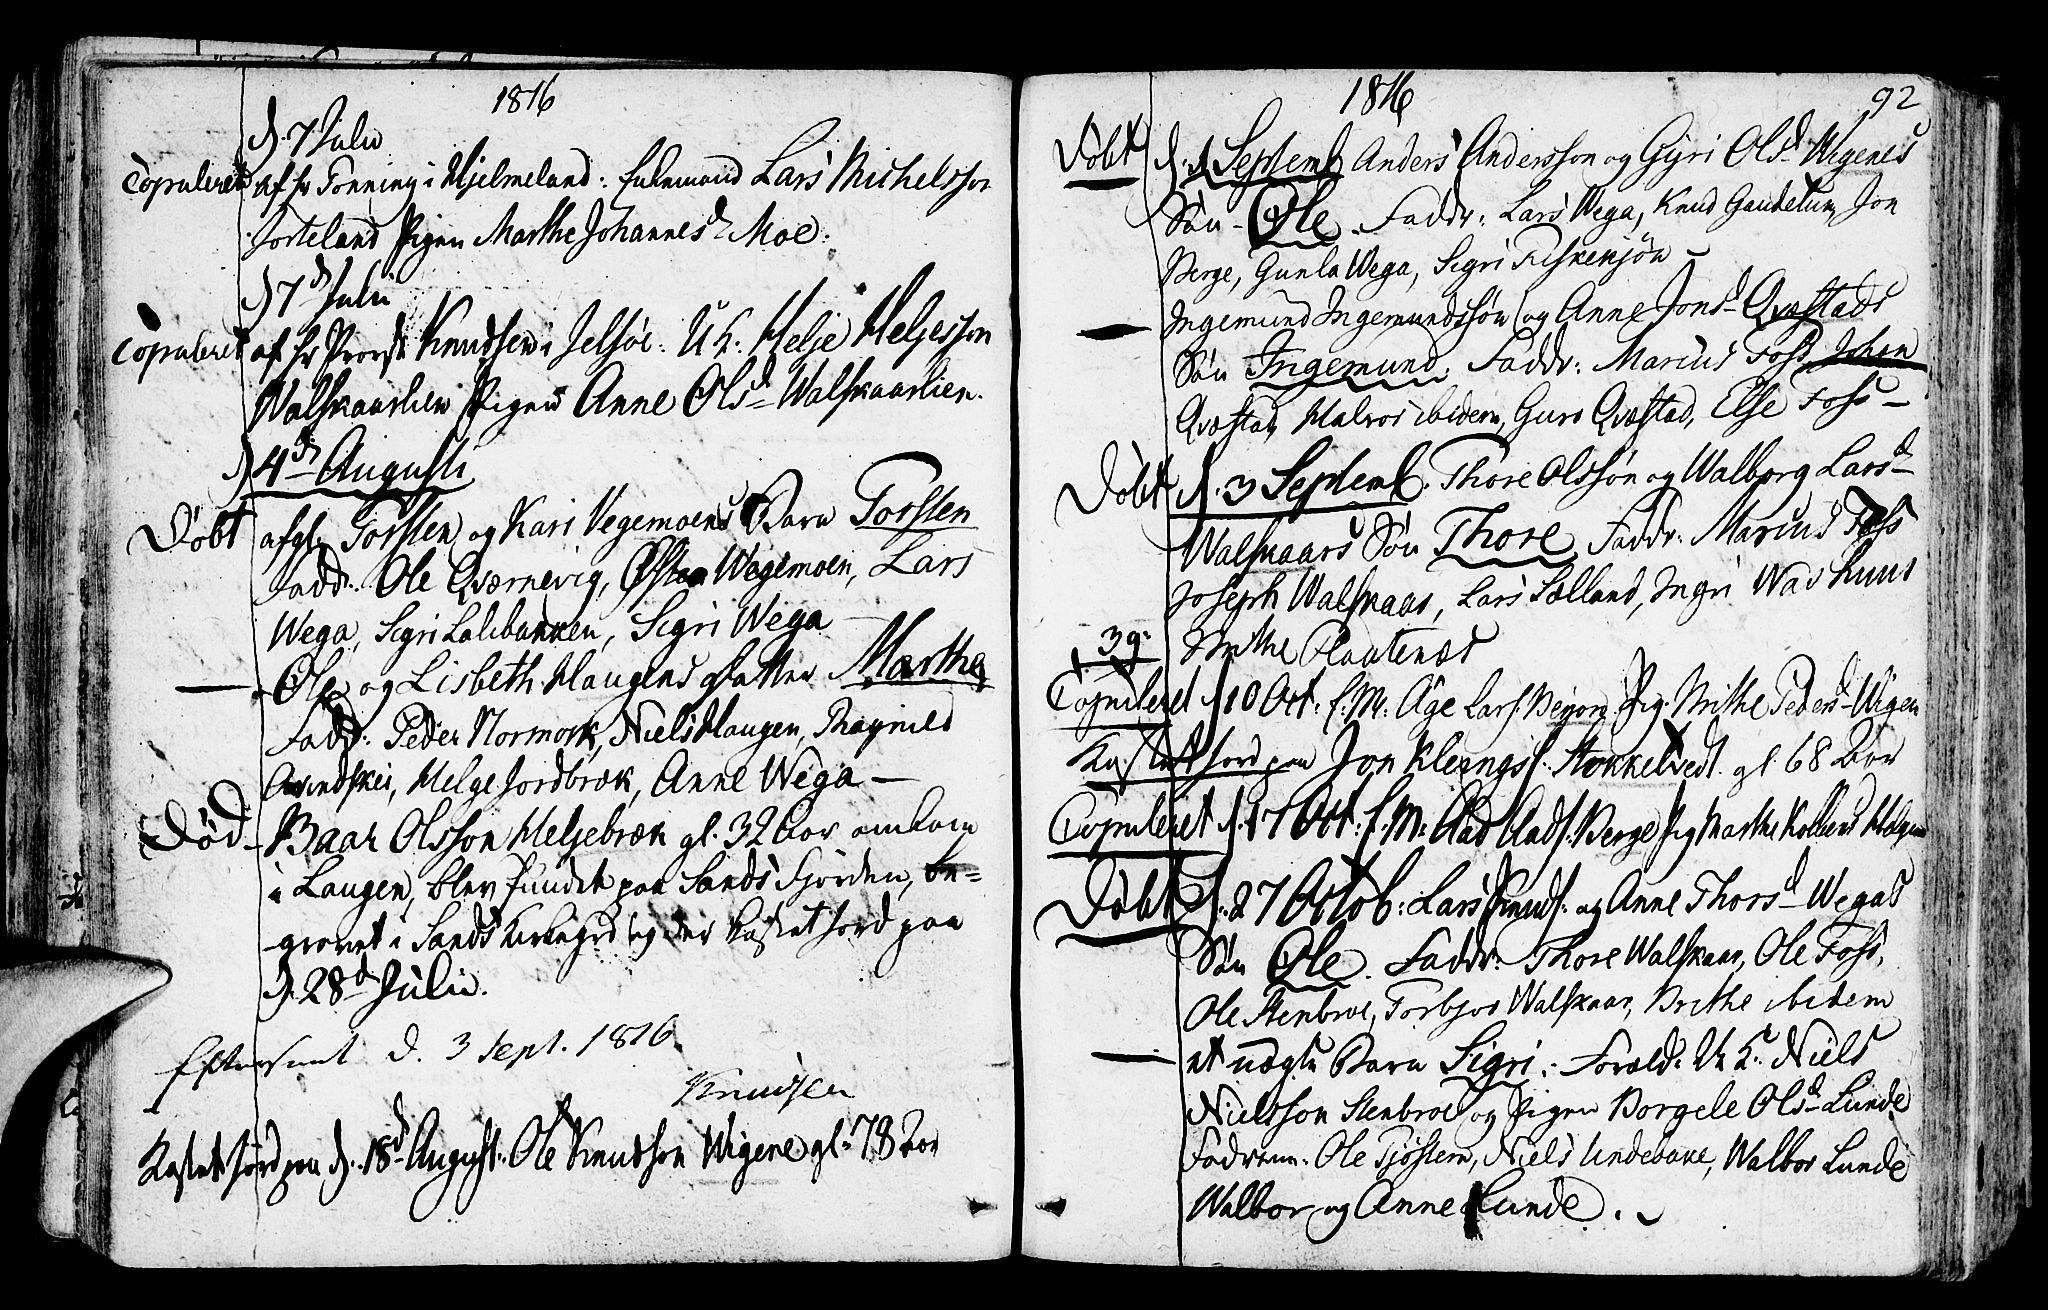 1816
d. 7 Julii
Copuleret af hr Tonning i Hjelmeland: Enkemand Lars Michelsson
Jorteland Pigen Marthe Johannesd. Moe.
d. 7d Julii
Copuleret af hr Provst Knudsen i Jelsøe: U. K. Helje Heljesson
Walskaarlien Pigen Anne Olsd. Walskaarlien.
d. 4d Augusti
Døbt afgl. Torsten og Kari Vegemoens Barn Torsten
Faddr. Ole Qværnevig, Østen Wegemoen, Lars
Wega, Sigri Lalibakken, Sigri Wega
— Ole og Lisbeth Haugens datter Marthe
Faddr. Peder Normork, Niels Haugen, Ragnild
Avindskei, Helge Jordbræk, Anne Wega —
Død. Baar Olsson Heljebræk gl. 32 Aar omkom
i Laugen, blev funden paa Sands Fjorden, be=
grovet i Sands Kirkegrd og der kastet Jord paa
d. 28d Julii.
Efterseet d. 3 Sept. 1816
Knudsen
Kastet Jord paa d. 18d August. Ole Knudson Wigene gl. 78 Aar
1816 92
Døbt d. 1 Septemb Anders Andersson og Gyri Olsd. Wegenes
Søn - Ole. Faddr: Lars Wega, Knud Gaudetun, Jon
Berge, Gunla Wega, Sigri Fiskekjøn -
— Ingemund Ingemundssøn og Anne Jonsd. Qvæstads
Søn Ingemund. Faddr: Marius Foss, Johan
Qvæstad, Halvor ibidem, Guro Qvæstad, Else Foss -
Døbt d. 3 Septemb. Thore Olssøn og Walborg Larsd.
Walskaars Søn Thore Faddr: Marius Foss
Joseph Walskaar, Lars Sælland, Ingri Washuus
39. Brithe Plaatenæs
Copuleret d. 10 Oct. E. M. Age Lars. Pig. Brithe Pedersd. Wigen
Kastet Jord paa Jon Kleengs. Stokkelvedt gl. 68 Aar
Copuleret d. 17 Oct. E. M. Aad Aads. Berge Pig Marthe
Døbt d. 27 Octob: Lars Knuds. og Anne Thorsd. Wegas
Søn Ole. Faddr: Thore Walskaar, Ole Foss,
Ole Stenbroe, Torbjor Walskaar, Brithe ibidem
— et uægte Barn Sigri. Foræld: U. K. Niels
Nielsson Stenbroe og Pigen Borgele Olsd. Lunde
Fadrene: Ole Tjøstem, Niels Lindebake, Walbor Lunde
Walbor og Anne Lunde.